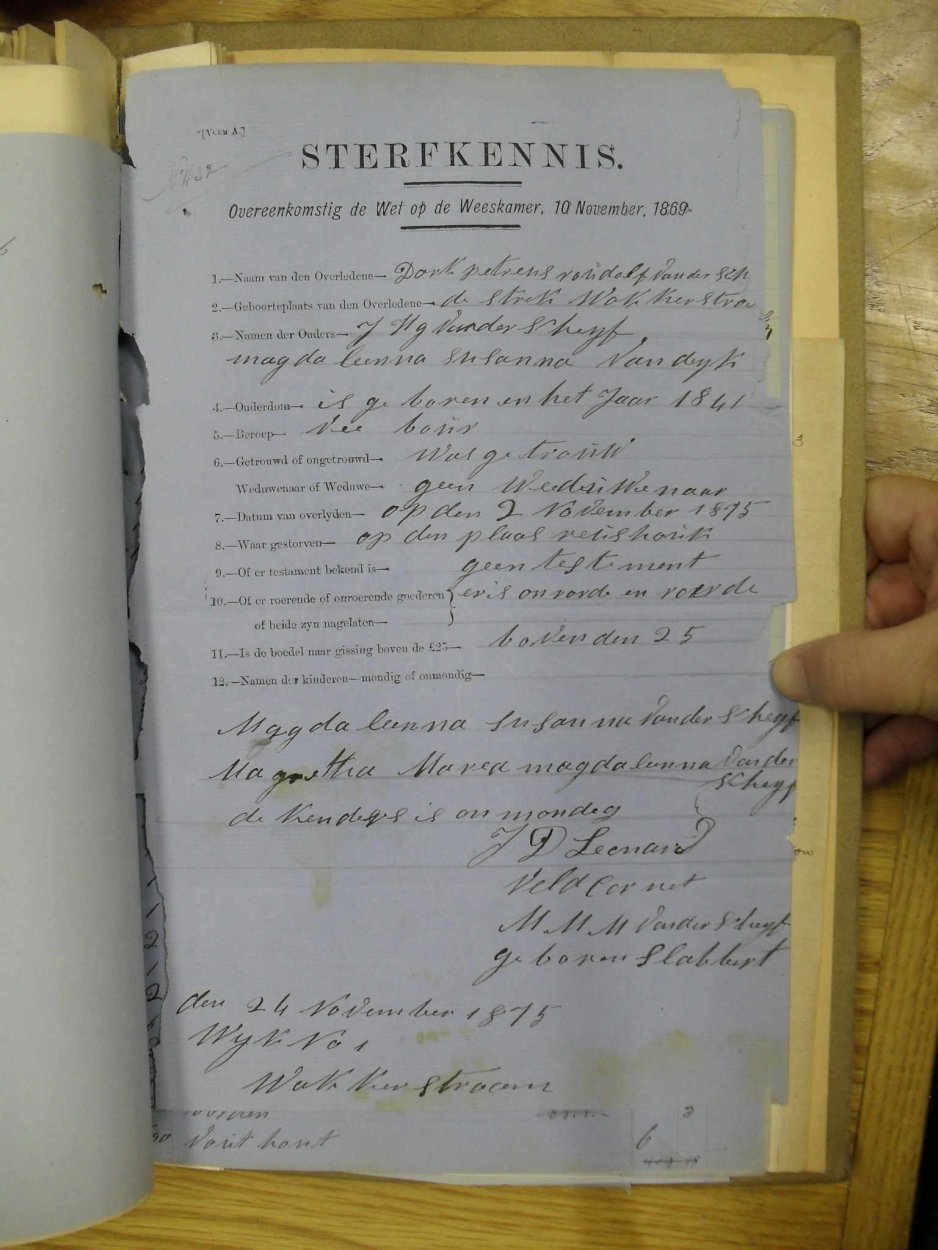 STERFKENNIS.
Overeenkomstig de Wet op de Weeskamer, 10 November, 1869.
1.—Naam van den Overledene— Dork petrens roudolf Vander Sch
2.—Geboorteplaats van den Overledene— de strek Wakkerstroo
3.—Namen der Ouders— J Hg Vander Scheyf
magdaleenna susanna Vandeyk
4.—Ouderdom— is geboren en het Jaar 1841
5.—Beroep— Vee bour
6.—Getrouwd of ongetrouwd— Was getrouw
Weduwenaar of Weduwe— geen Weduwenaar
7.—Datum van overlyden— op den 2 November 1875
8.—Waar gestorven— op den plaas
9.—Of er testament bekend is— geen testement
10.—Of er roerende of onroerende goederen } er is onrorde en roerde
of beide zyn nagelaten—
11.—Is de boedel naar gissing boven de £25— boven den 25
12.—Namen der kinderen—mondig of onmondig—
Magdaleenna susanna Vander Scheyf
Magretha Marea magdaleenna Vander
Scheyf
de kenders is onmondeg
J D Leonard
Veld Cornet
M M M Vander Scheyf
geboren Slabbert
den 24 November 1875
Wyk No 1
Wakkerstroom
6
3